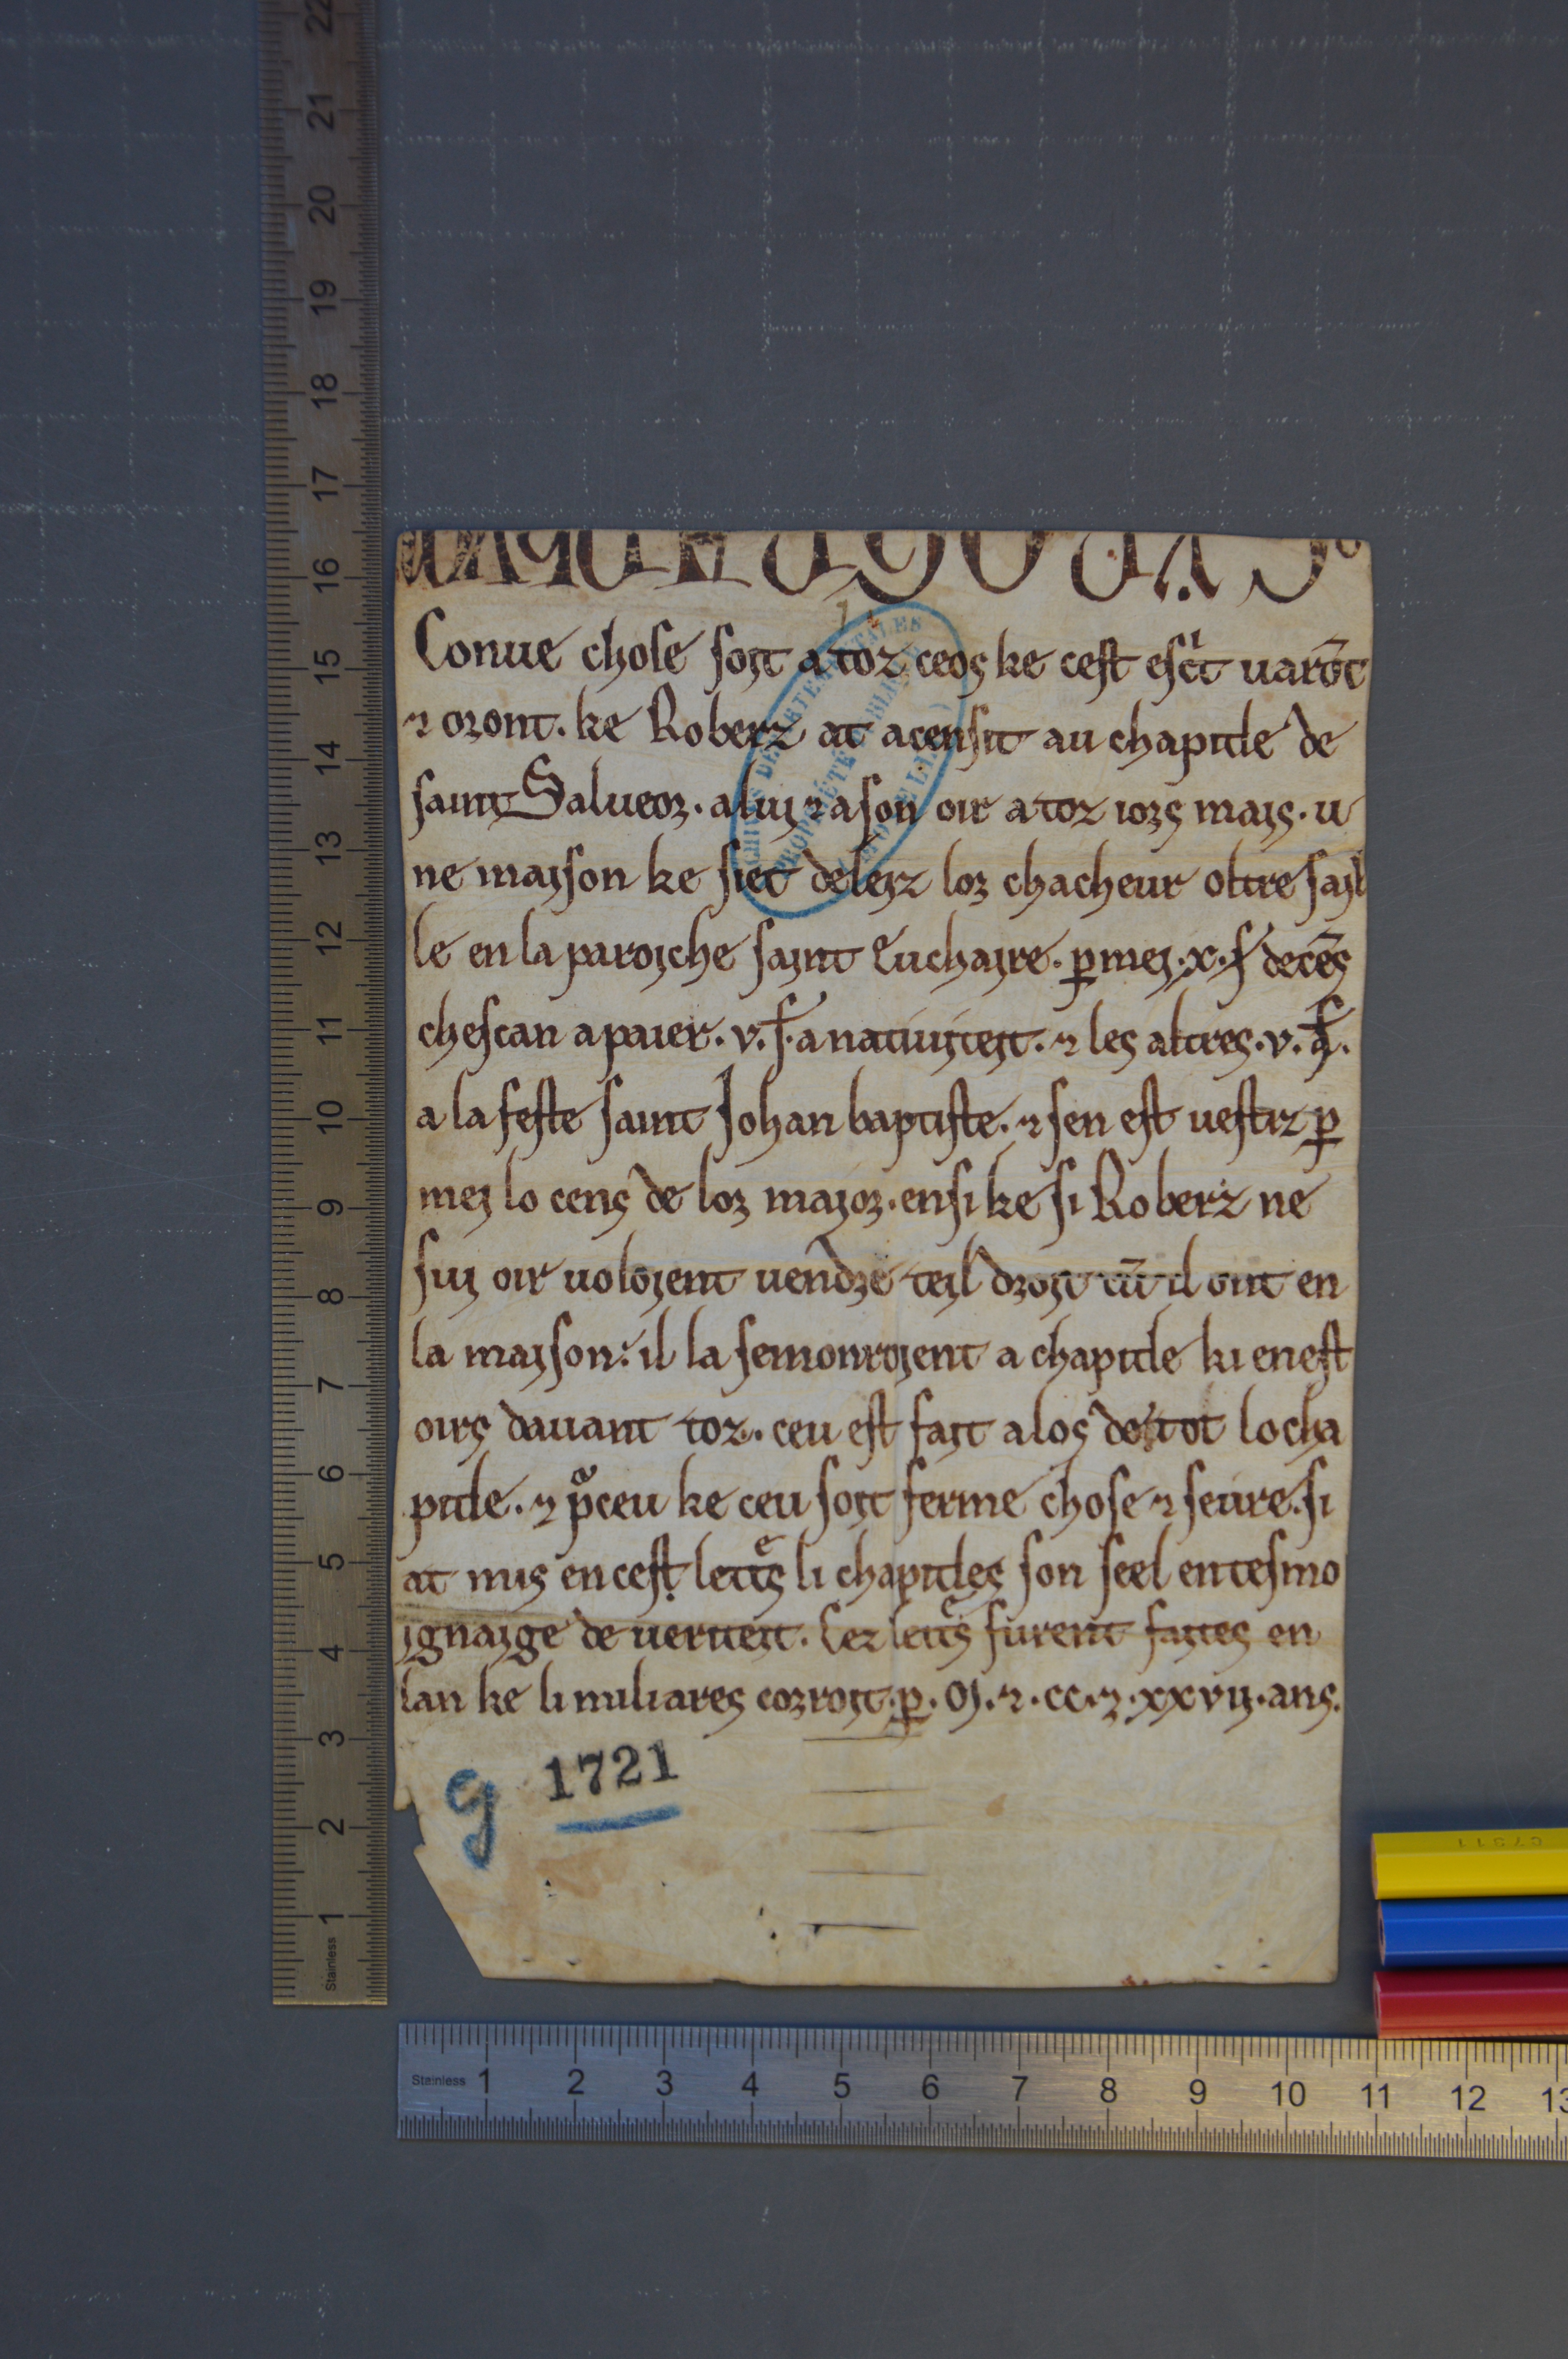 Conue chose soit a toz ceos ke cest escͥt uarōt
⁊ oront. ke Roberz at acensit au chapitle de
saint Salueor. a lui ⁊ a son oir a toz iors mais. u
ne maison ke siet deleiz lor chacheur oltre sail
le en la paroiche saint Euchaire. ꝑ mei. x. ẜ de cēs
chescan a paier. v. ẜ. a natiuiteit. ⁊ les altres. v. ẜ.
a la feste saint Johan baptiste. ⁊ sen est uestiz ꝑ
mei lo cens de lor maior. ensi ke si Roberz ne
sui oir uoloient uendre teil droit cū il ont en
la maison: il la semonroient a chapitle ki en est
oirs dauant toz. ceu est fait a los de tot lo cha
pitle. ⁊ pͣceu ke ceu soit ferme chose ⁊ seure. si
at mis en cest lettͤs li chapitles son seel en tesmo
ignaige de ueriteit. Cez lettͤs furent faites en
lan ke li miliares corroit. ꝑ. M. ⁊. cc. ⁊. xxvij. ans.
g 1721
Stainless 1 2 3 4 5 6 7 8 9 10 11 12 13 14 15 16 17 18 19 20 21 22
Stainless 1 2 3 4 5 6 7 8 9 10 11 12 13